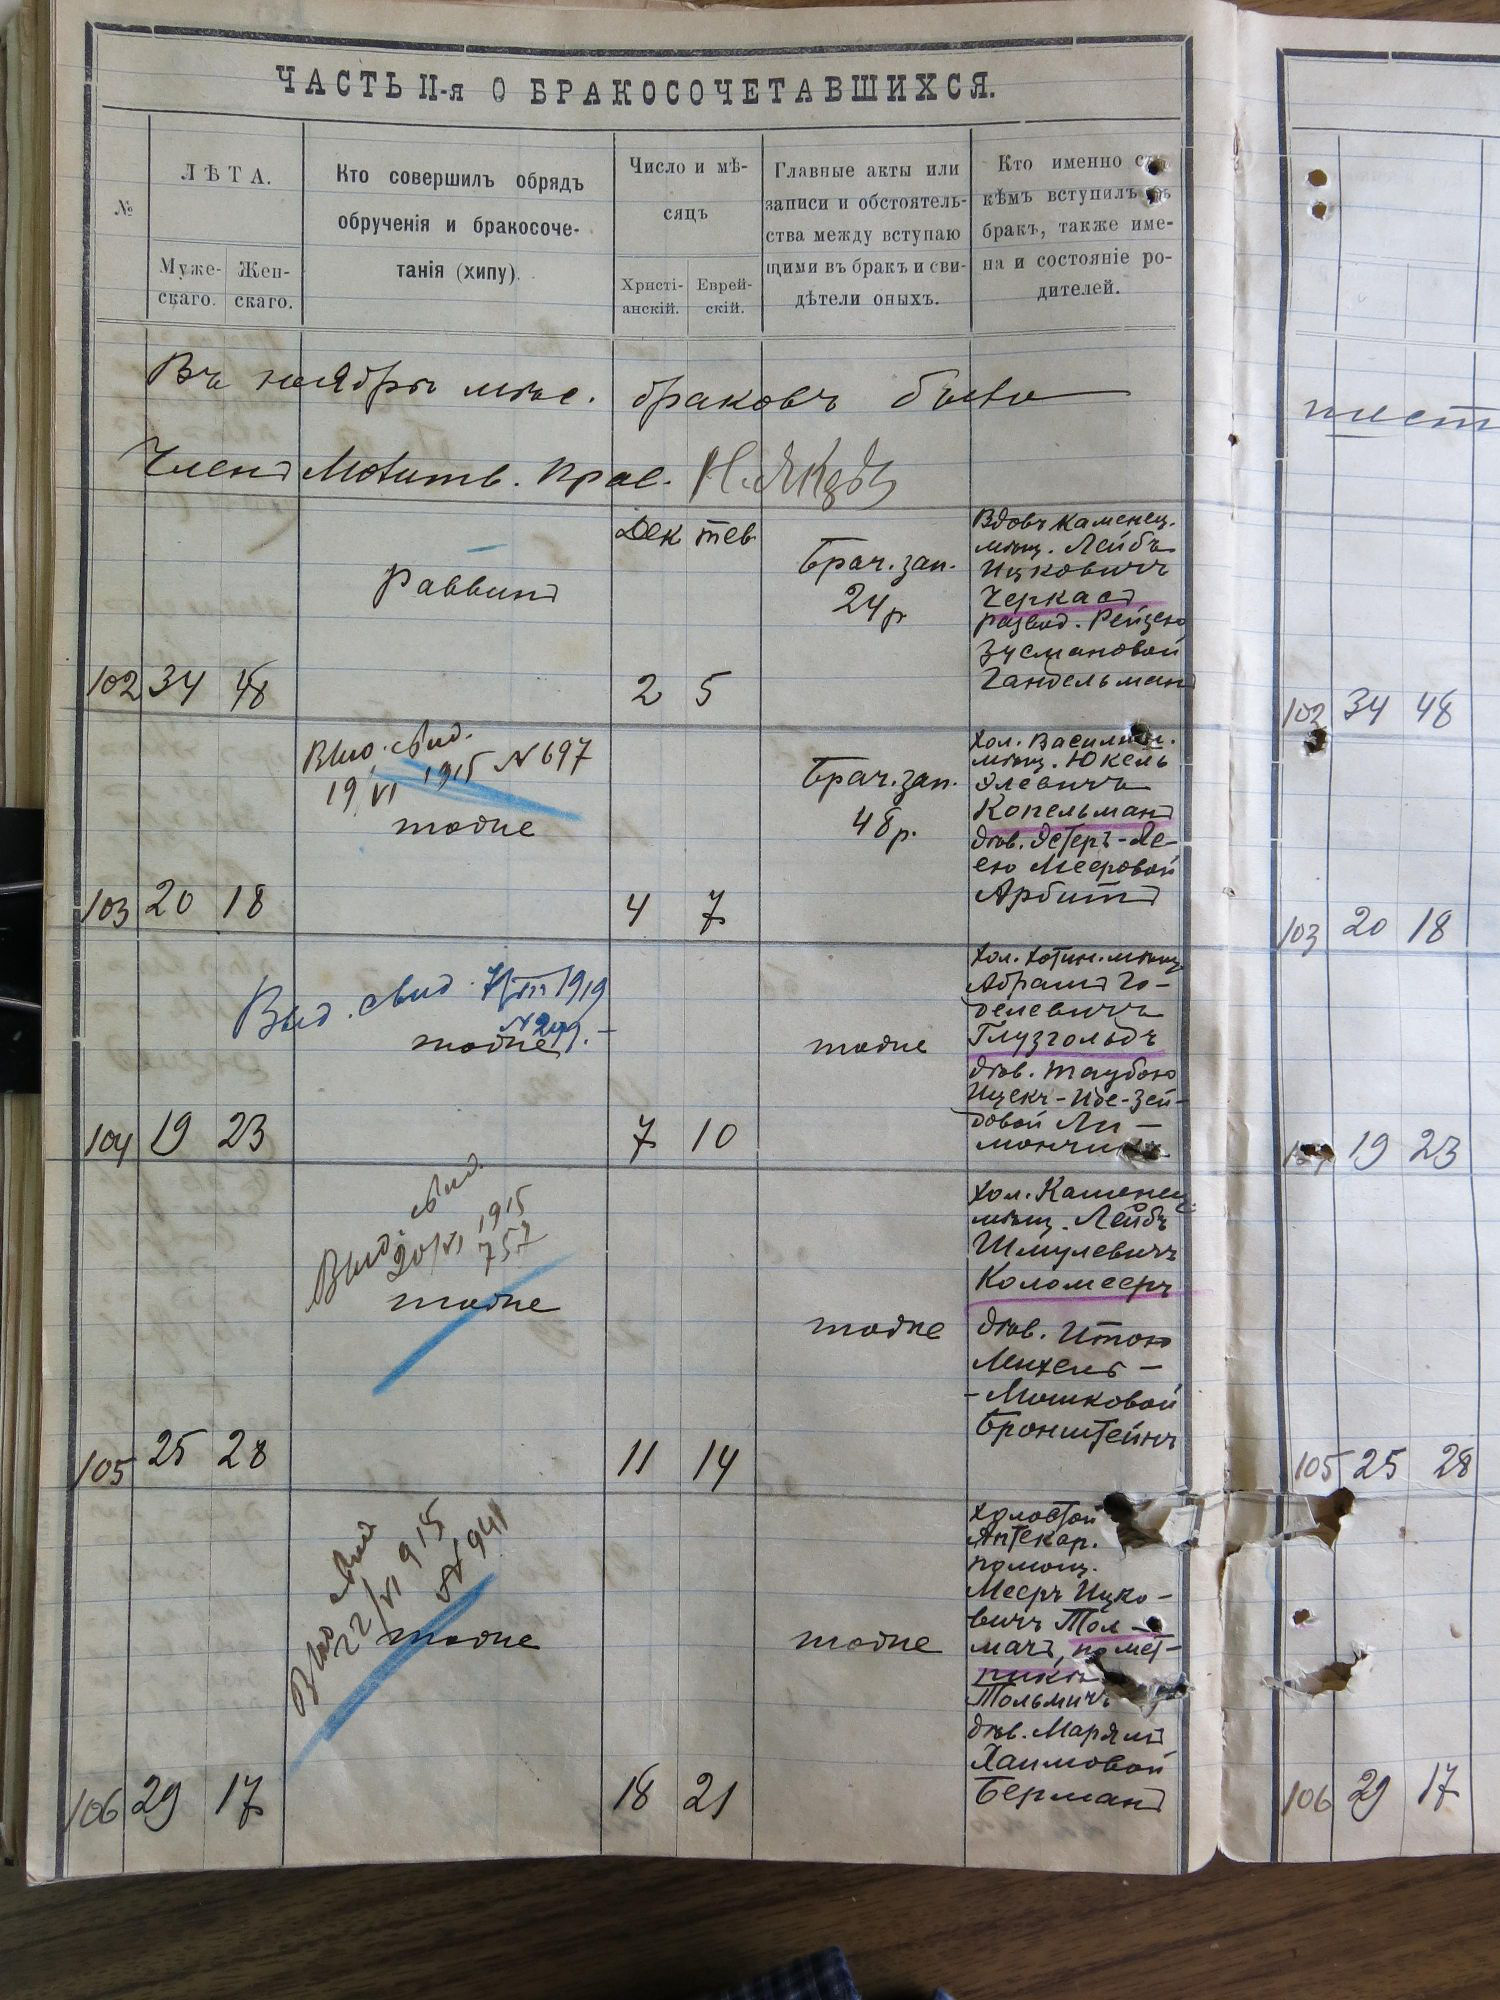 ЧАСТЬ II-я О БРАКОСОЧЕТАВШИХСЯ.
№
ЛѢТА.
Муже-
скаго.
Жен-
скаго.
Кто совершилъ обрядъ
обрученія и бракосоче-
танія (хипу).
Число и мѣ-
сяцъ
Христі-
анскій.
Еврей-
скій.
Главные акты или
записи и обстоятель-
ства между вступаю
щими въ бракъ и сви-
дѣтели оныхъ.
Кто именно съ
кѣмъ вступилъ въ
бракъ, также име-
на и состояніе ро-
дителей.
Въ ноябрѣ мѣс. браковъ было
шест
Членъ Молитв. Прав.
Дек тев
102 34 48
Раввинъ
2 5
Брач. зап.
24 р
Вдовъ Каменец.
мѣщ. Лейбъ
Ицковичъ
Черкасъ
развед. Рейзею
Зусмановой
Гандельманъ
102 34 48
103 20 18
Выд. свид.
19/VI 1915 N 697
тоже
4 7
Брач. зап.
48 р.
хол. Василик.
мѣщ. Юкель
Элевичъ
Копельманъ
дѣв. Эстеръ-Ле-
ею Мееровой
Арбитъ
103 20 18
104 19 23
Выд. свид. 7/VIII 1919
N 299.-
тоже
7 10
тоже
хол. Хотин. мѣщ
Абрамъ Го-
делевичъ
Глузгольдъ
дѣв. Таубою
Ицекъ-Иде-Зей-
довой Ли-
мончикъ
104 19 23
105 25 28
Выд. свид.
20/VI 1915
757
тоже
11 14
тоже
хол. Каменец.
мѣщ. Лейбъ
Шмулевичъ
Коломееръ
дѣв. Итою
Михель-
-Мошковой
Бронштейнъ
105 25 28
106 29 17
Выд свид
22/VI 915
N 941
тоже
18 21
тоже
Холостой
Аптекар.
помощ.
Мееръ Ицко-
вичъ Тол-
мачъ, по мет-
рикѣ
Тольмичъ
дѣв. Марямъ
Хаимовой
Берманъ
106 29 17